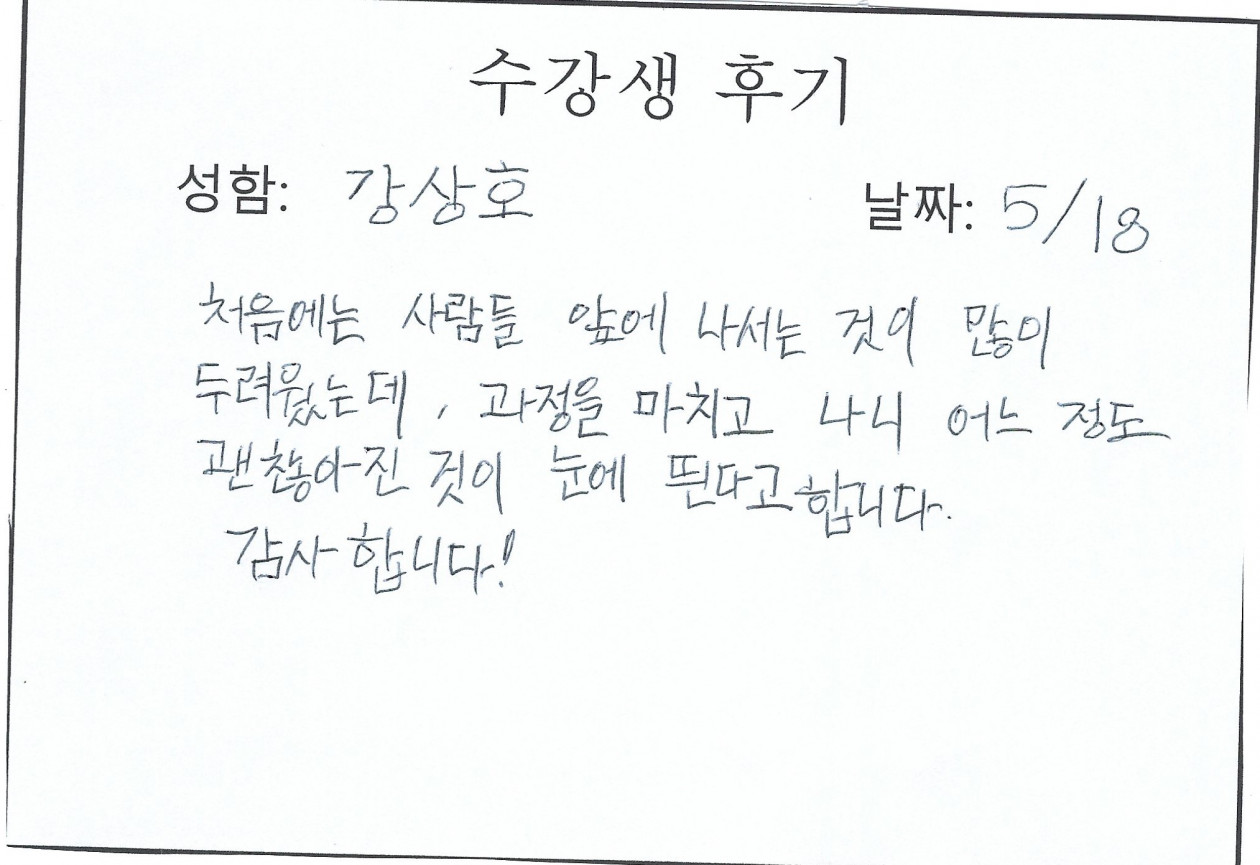 수강생 후기
성함: 강상호 날짜: 5/18
처음에는 사람들 앞에 나서는 것이 많이
두려웠는데, 과정을 마치고 나니 어느 정도
괜찮아진 것이 눈에 띈다고 합니다.
감사합니다!